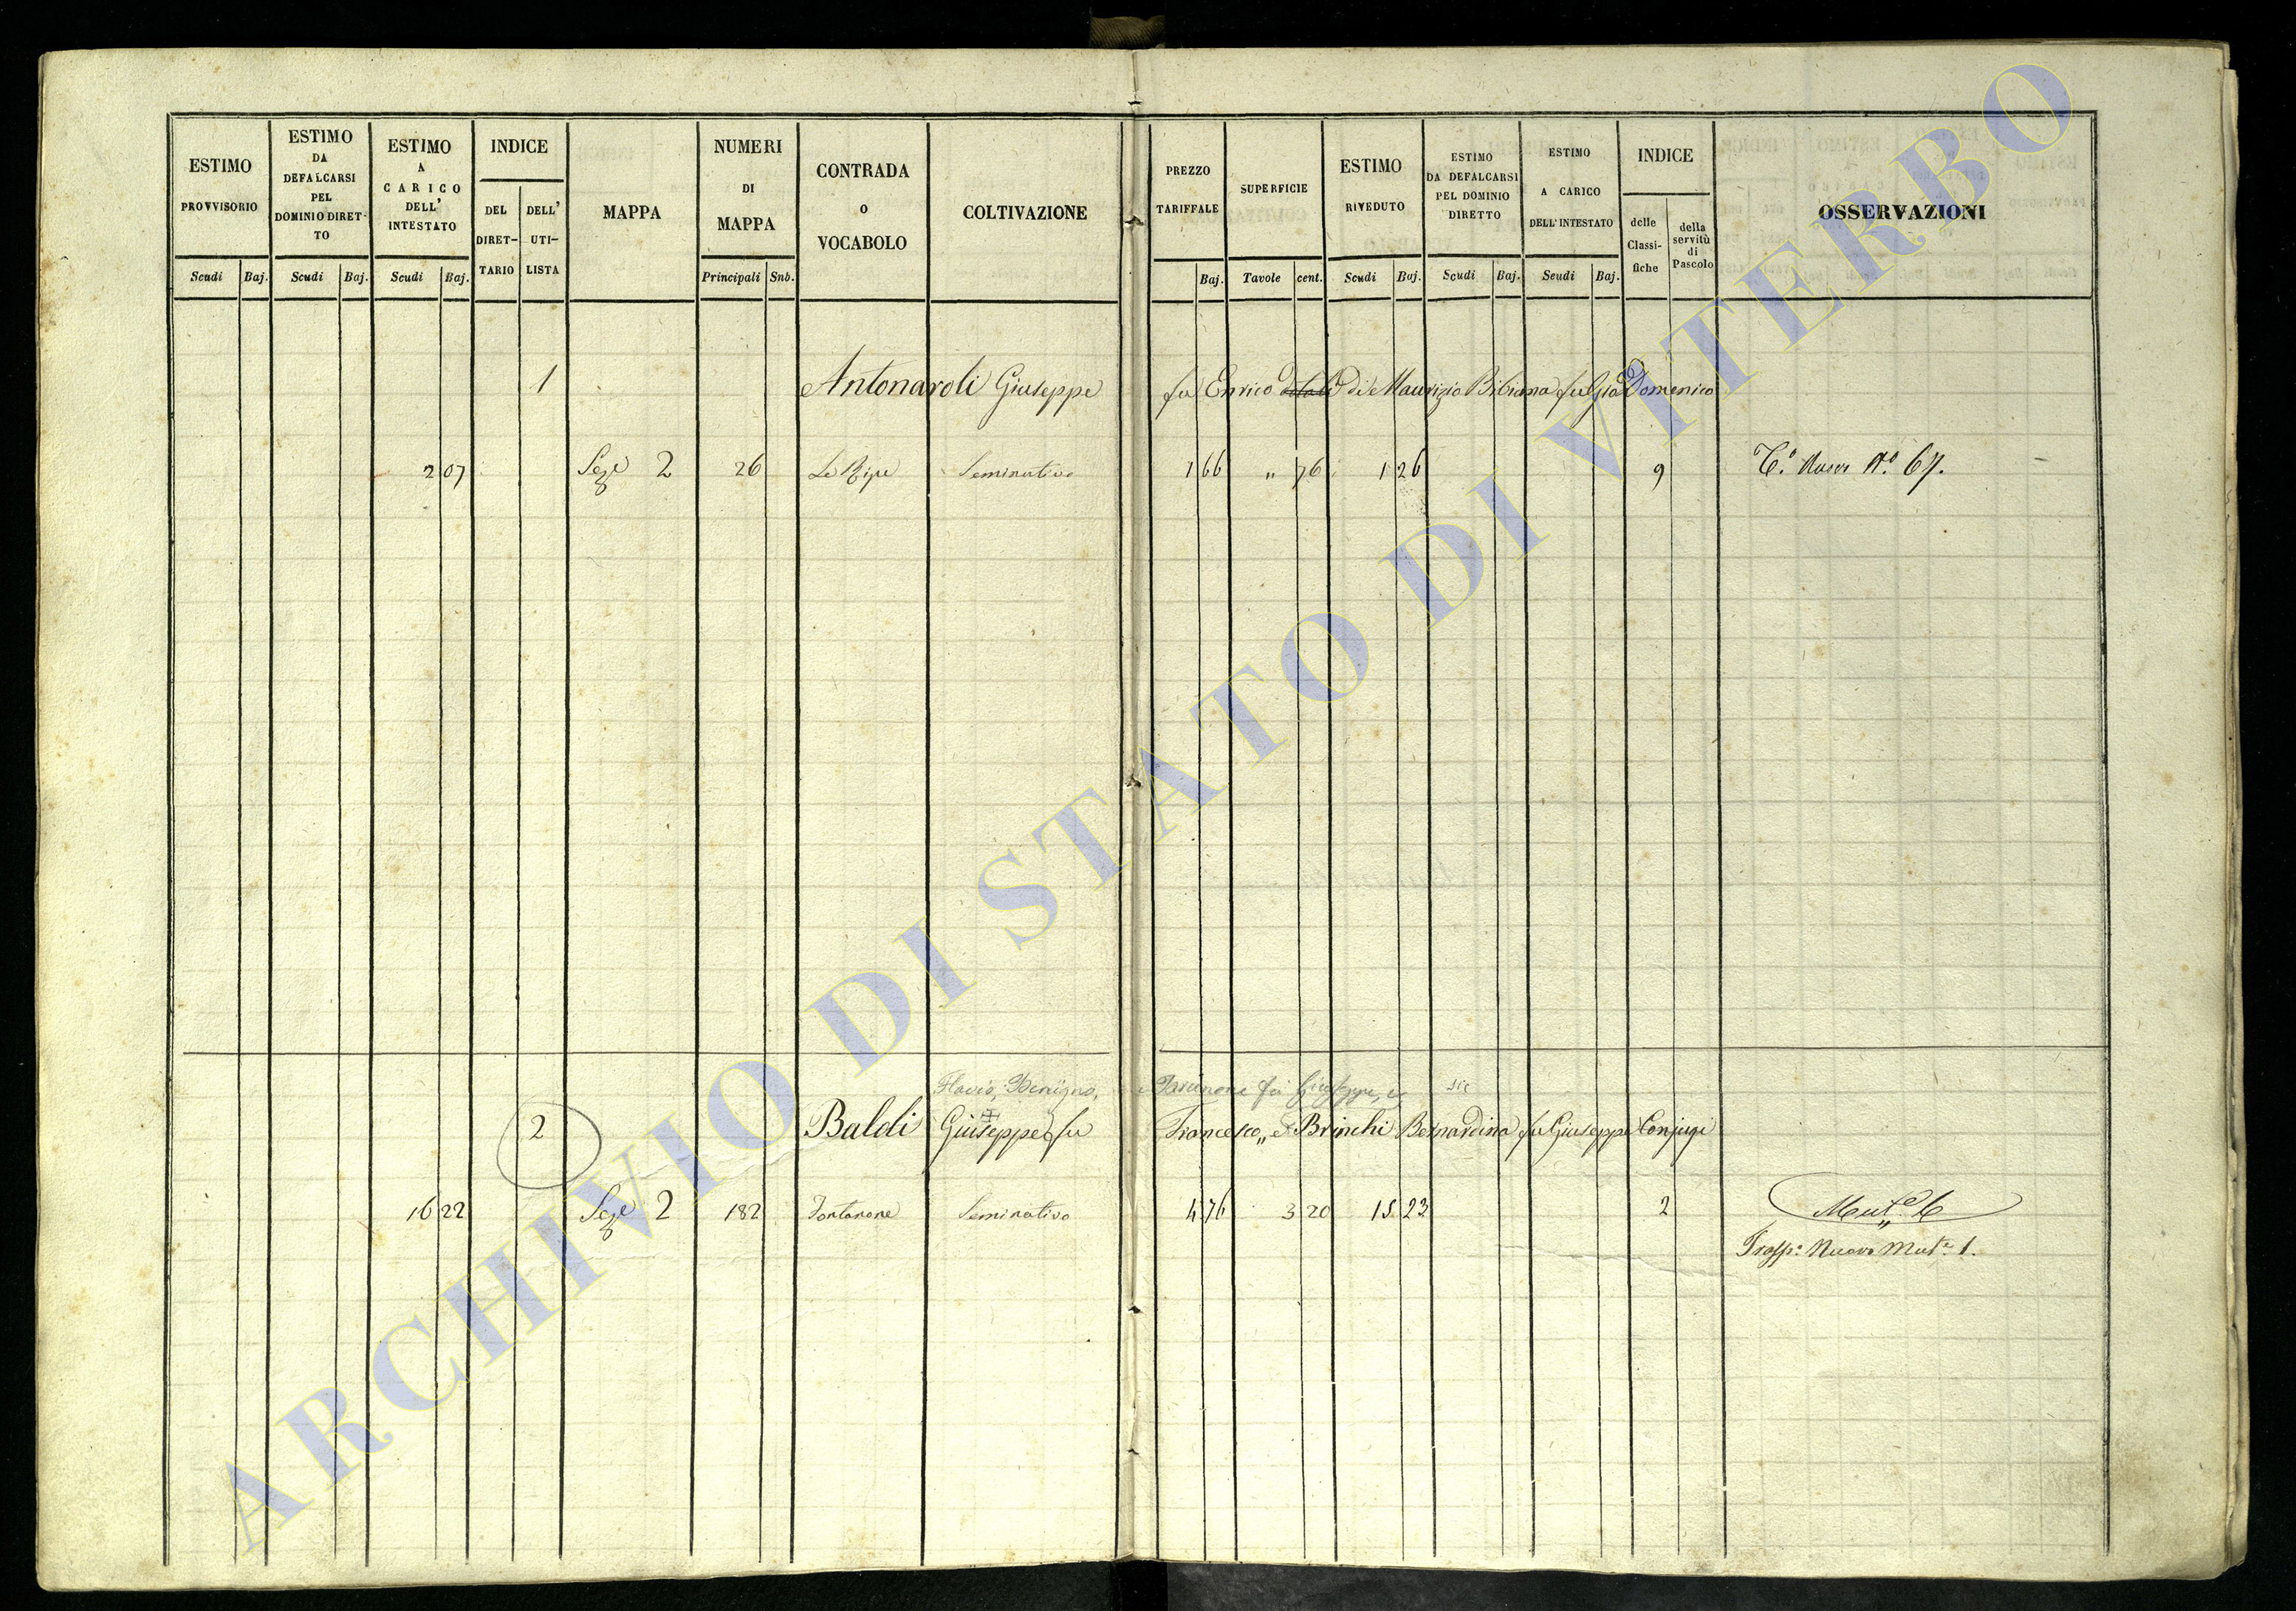 ESTIMO PROVVISORIO Scudi Baj.
ESTIMO DA DEFALCARSI PEL DOMINIO DIRET-TO Scudi Baj.
ESTIMO A CARICO DELL' INTESTATO Scudi Baj.
INDICE DEL DIRET-TARIO DELL' UTI-LISTA
MAPPA
NUMERI DI MAPPA Principali Snb.
CONTRADA O VOCABOLO
COLTIVAZIONE
PREZZO TARIFFALE Baj.
SUPERFICIE Tavole cent.
ESTIMO RIVEDUTO Scudi Baj.
ESTIMO DA DEFALCARSI PEL DOMINIO DIRETTO Scudi Baj.
ESTIMO A CARICO DELL'INTESTATO Scudi Baj.
INDICE delle Classi-fiche della servitù di Pascolo
OSSERVAZIONI
1 Antonaroli Giuseppe fu Enrico di Maurizio Bibiana fu Gio Domenico
2 07 Sez.e 2 26 Le Ripe Seminativo 1 66 " 76 1 26 9 Nuovo N.o 67.
Flavio, Benigno, fu Giuseppe, e sic
2 Baldi Giuseppe fu Francesco „ e Brinchi Bernardina fu Giuseppe Conjugi
16 22 Sez.e 2 182 Fontanone Seminativo 4 76 3 20 15 23 2 Mut.e 6
Trasp.o Nuovo Mut.e 1.
ARCHIVIO DI STATO DI VITERBO